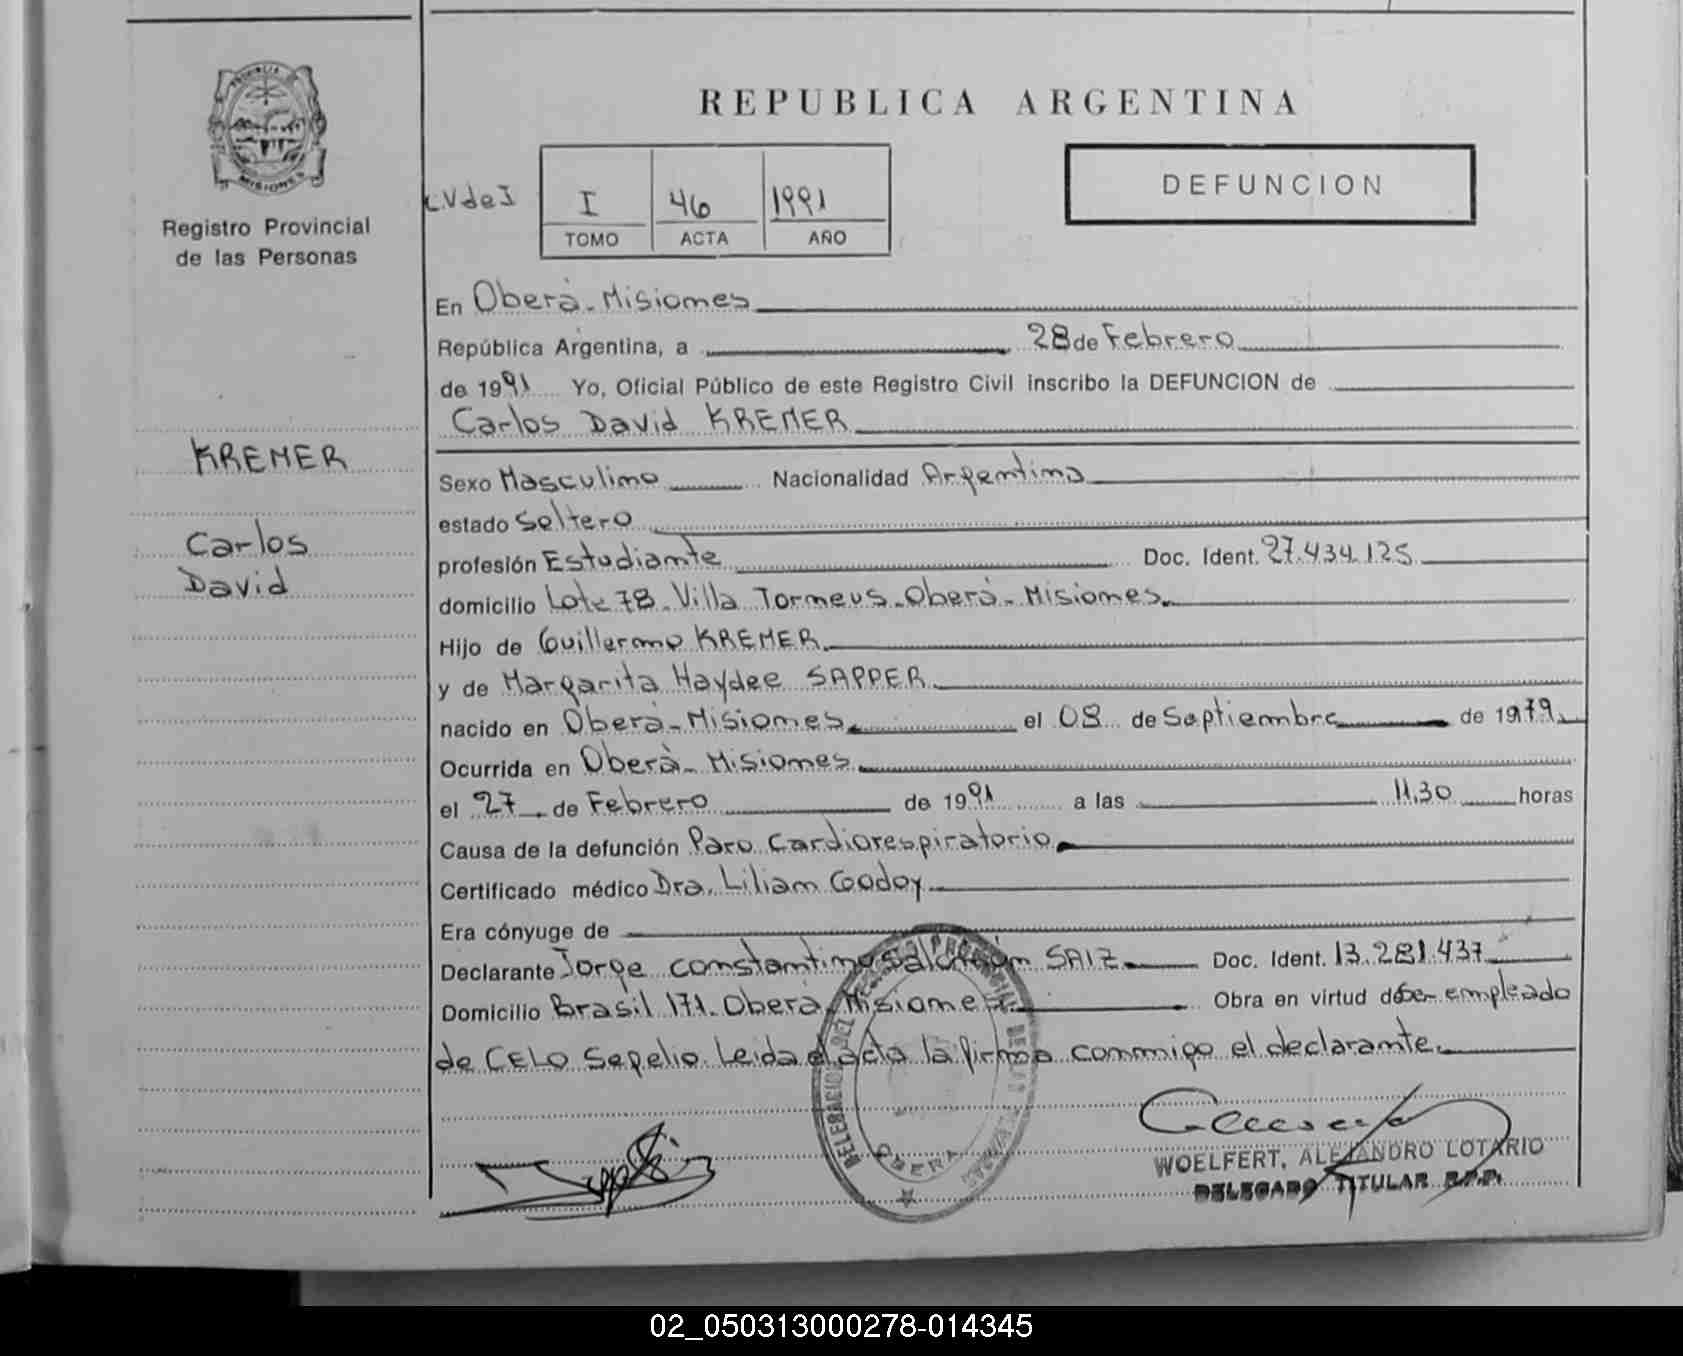 REPUBLICA ARGENTINA
PROVINCIA DE
MISIONES
Registro Provincial
de las Personas
DEFUNCION
I 46 1991
TOMO ACTA AÑO
En Oberà - Misiones
República Argentina, a 28 de Febrero
de 1991 Yo, Oficial Público de este Registro Civil inscribo la DEFUNCION de
Carlos David KREMER
KREMER
Carlos
David
Sexo Masculino Nacionalidad Argentina
estado Soltero
profesión Estudiante Doc. Ident. 27.434.125
domicilio Lote 78 - Villa Torneus - Oberà - Misiones.
Hijo de Guillermo KREMER
y de Margarita Haydee SAPPER
nacido en Oberà - Misiones el 08 de Septiembre de 1979
Ocurrida en Oberà - Misiones
el 27 de Febrero de 1991 a las 11,30 horas
Causa de la defunción Paro Cardiorespiratorio
Certificado médico Dra. Liliam Godoy
Era cónyuge de
Declarante Jorge Constantino SAIZ Doc. Ident. 13.281.437
Domicilio Brasil 171 - Oberà - Misiones Obra en virtud de ser empleado
de CELO Sepelio. Leida el acta la firma conmigo el declarante.
OBERA
WOELFERT, ALEJANDRO LOTARIO
DELEGADO TITULAR R.P.P.
02_050313000278-014345